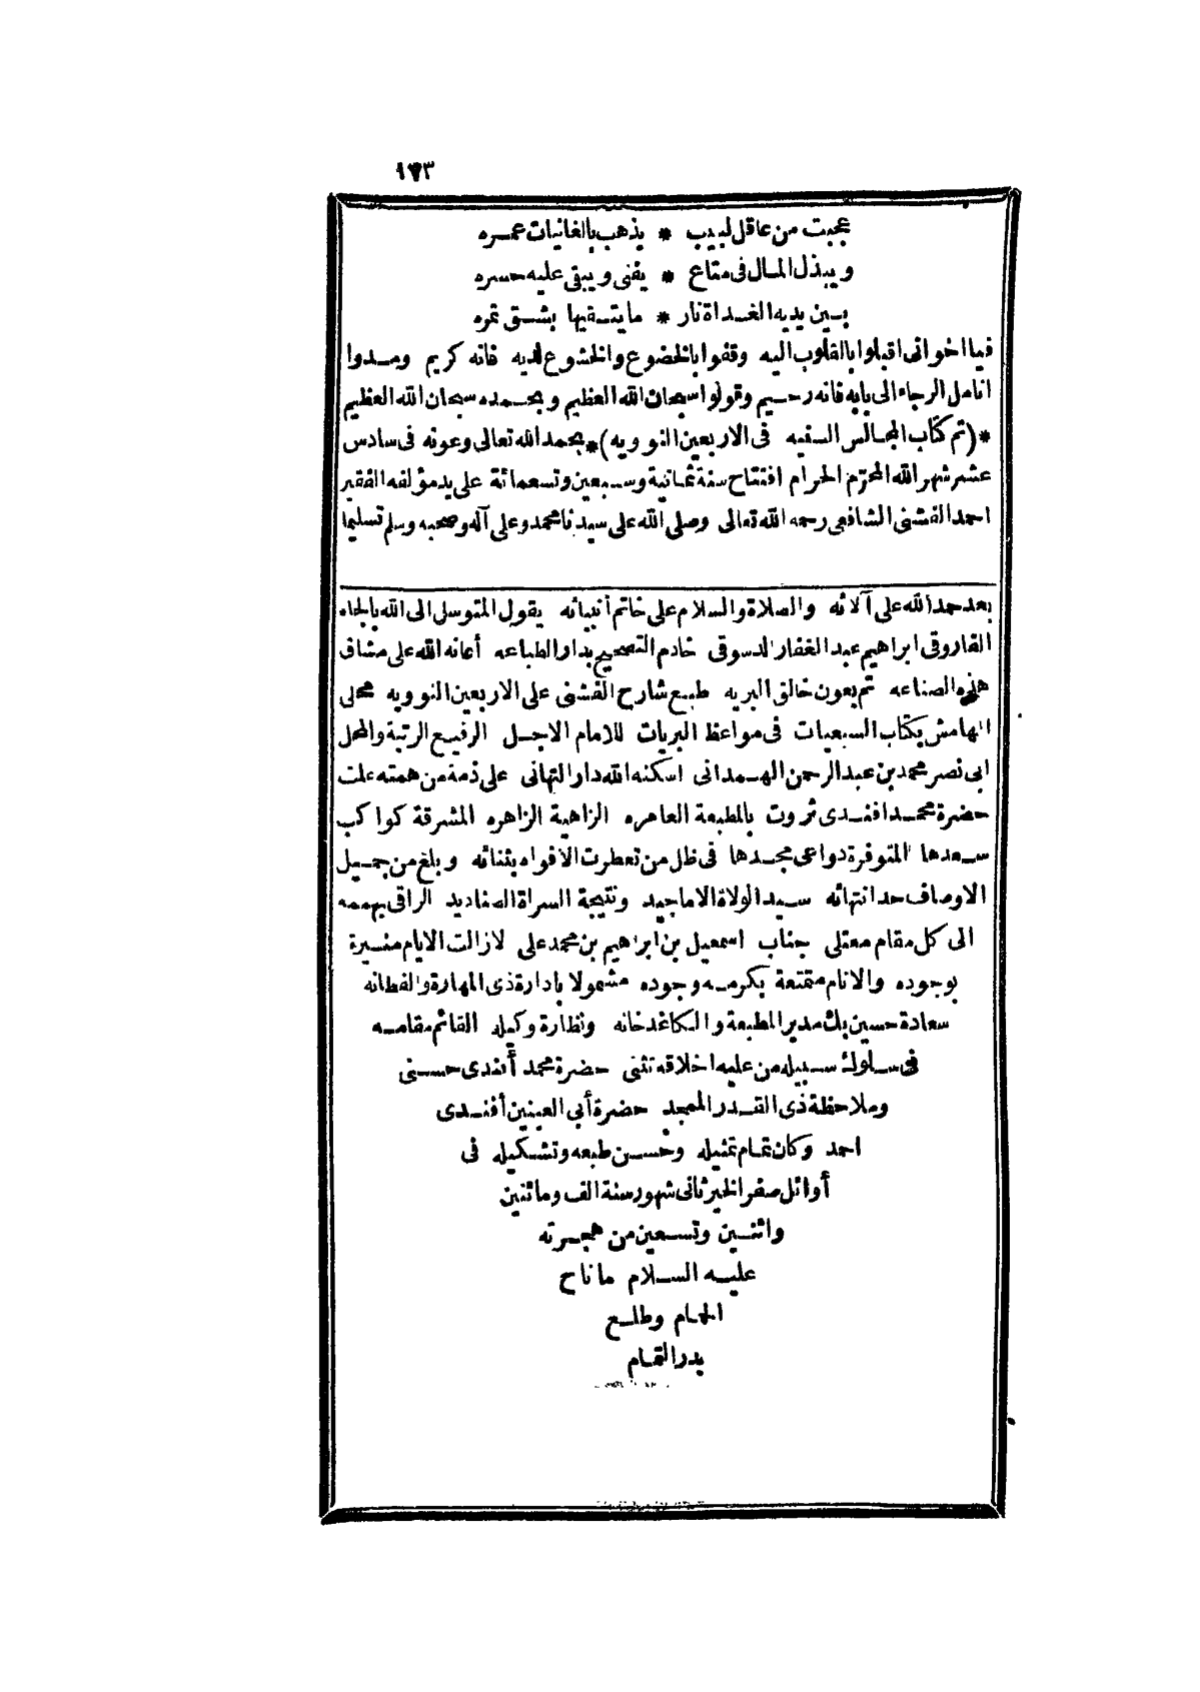 ١٧٣
عجبت من عاقل لبيب * يذهب بالغانيات عمره
ويبذل المال فى متاع * يفنى ويبقى عليه حسره
بين يديه الغداة نار * ما يتقيها بشق تمره
فيا اخوانى اقبلوا بالقلوب اليه وقفوا بالخضوع والخشوع لديه فانه كريم ومدوا
انامل الرجاء الى بابه فانه رحيم وقولوا سبحان الله العظيم وبحمده سبحان الله العظيم
*(تم كتاب المجالس السنيه فى الاربعين النوويه)* بحمد الله تعالى وعونه فى سادس
عشر شهر الله المحرّم الحرام افتتاح سنة ثمانية وسبعين وتسعمائة على يد مؤلفه الفقير
احمد الفشنى الشافعى رحمه الله تعالى وصلى الله على سيدنا محمد وعلى آله وصحبه وسلم تسليما
بعد حمد الله على آلائه والصلاة والسلام على خاتم أنبيائه يقول المتوسل الى الله بالجاه
الفاروقى ابراهيم عبد الغفار الدسوقى خادم التصحيح بدار الطباعه أعانه الله على مشاق
هذه الصناعه تم بعون خالق البريه طبع شارح الفشنى على الاربعين النوويه محلى
الهامش بكتاب السبعيات فى مواعظ البريات للامام الاجل الرفيع الرتبة والمحل
ابى نصر محمد بن عبد الرحمن الهمدانى اسكنه الله دار التهانى على ذمة من همته علت
حضرة محمد افندى ثروت بالمطبعة العامره الزاهية الزاهره المشرقة كواكب
سعدها المتوفرة دواعى مجدها فى ظل من تعطرت الافواه بثنائه وبلغ من جميل
الاوصاف حد انتهائه سيد الولاة الاماجيد ونتيجة السراة الصناديد الراقى بهممه
الى كل مقام معتلى جناب اسمعيل بن ابراهيم بن محمد على لازالت الايام منيرة
بوجوده والانام متمتعة بكرمه وجوده مشمولا بادارة ذى المهارة والفطانه
سعادة حسين بك مدير المطبعة والكاغدخانه ونظارة وكيله القائم مقامه
فى سلوك سبيله من عليه اخلاقه تثنى حضرة محمد أفندى حسنى
وملاحظة ذى القدر الممجد حضرة أبي العينين أفندى
احمد وكان تمام تمثيله وحسن طبعه وتشكيله فى
أوائل صفر الخير ثانى شهور سنة الف ومائتين
واثنين وتسعين من هجرته
عليه السلام ما ناح
الحمام وطلع
بدر التمام